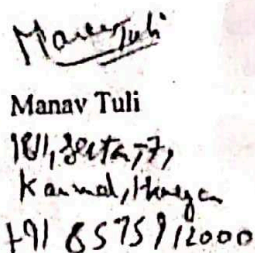 Manav Tuli
Manav Tuli
1811, Sector-7,
Karnal, Haryana
+91 85759 12000